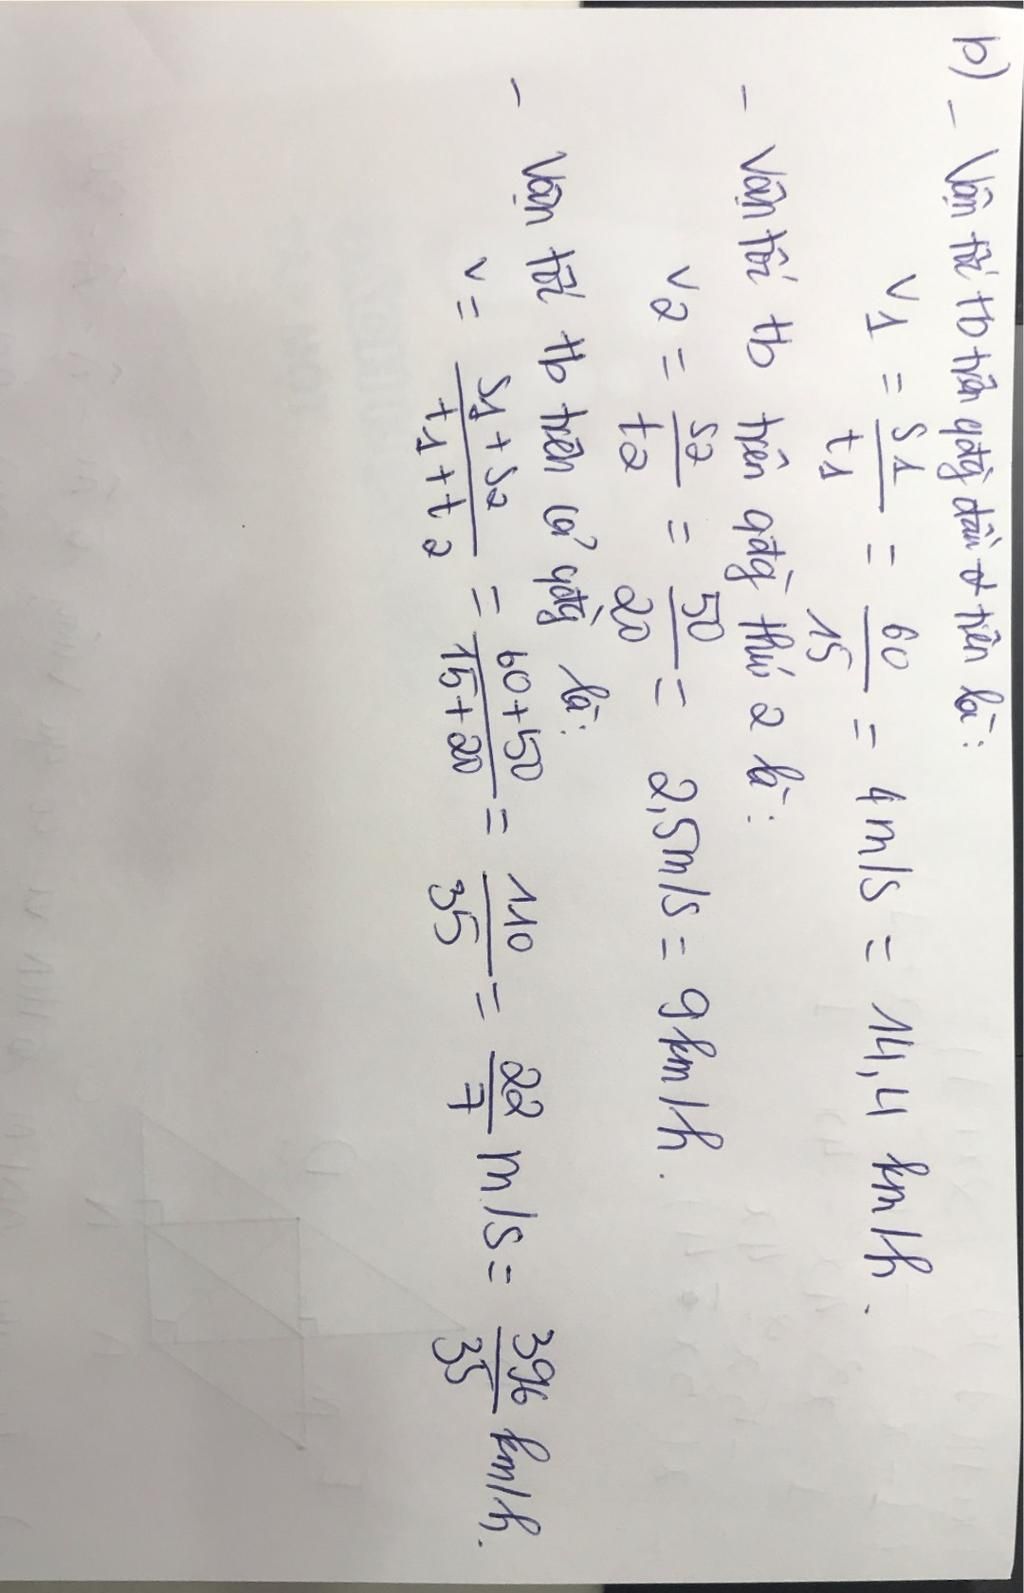 b) - Vận tốc tb trên qđg đầu tiên là:
v1 = s1/t1 = 60/15 = 4m/s = 14,4 km/h.
- Vận tốc tb trên qđg thứ 2 là:
v2 = s2/t2 = 50/20 = 2,5m/s = 9km/h.
- Vận tốc tb trên cả qđg là:
v = s1+s2/t1+t2 = 60+50/15+20 = 110/35 = 22/7 m/s = 396/35 km/h.